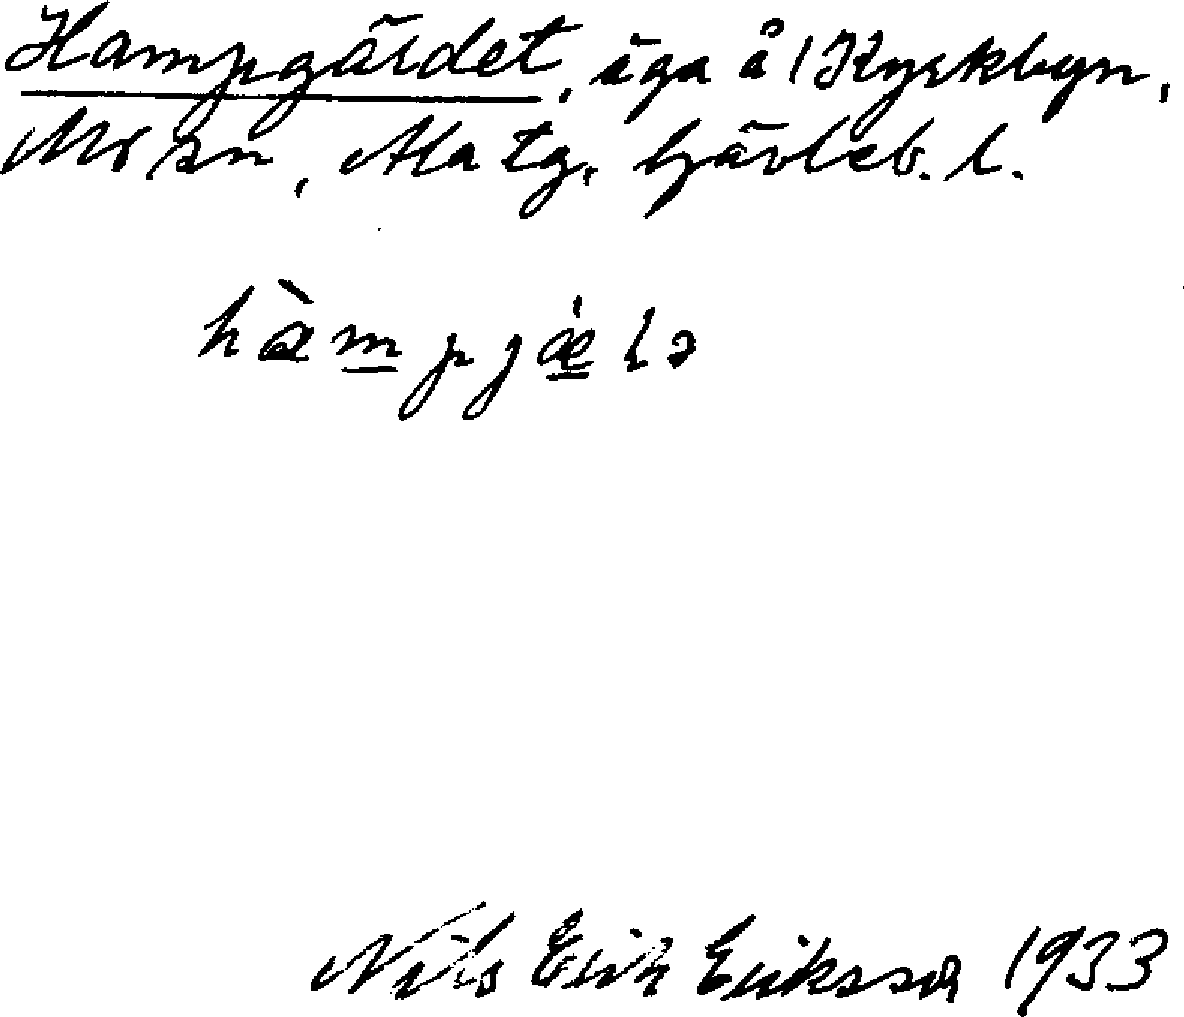 Hampgärdet, äga å 1 Kyrkbyn,
Mo sn, Ala tg, Gävleb. l.
hàmpjǽɭə
Nils Erik Eriksson 1933